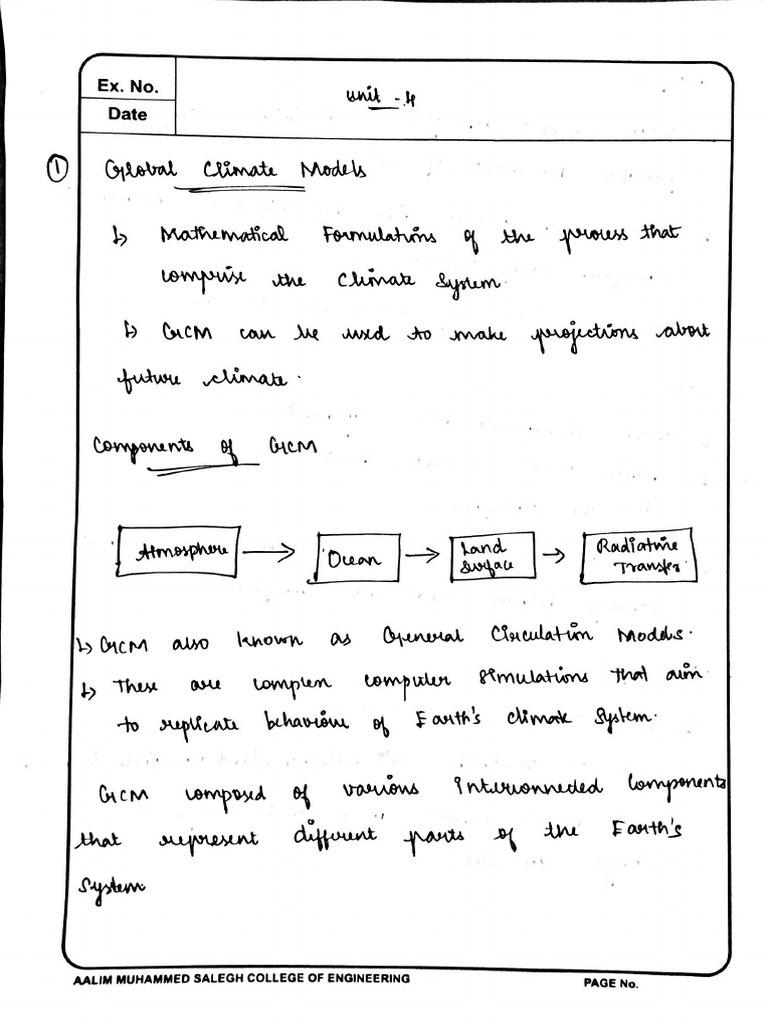 Ex. No.
Unit - 4
Date
① Global Climate Models
↳ Mathematical Formulations of the process that
comprise the Climate System
↳ GCM can be used to make projections about
future climate.
Components of GCM
Atmosphere → Ocean → Land Surface → Radiative Transfer
↳ GCM also known as General Circulation Models.
↳ These are complex computer simulations that aim
to replicate behaviour of Earth's climate System.
GCM composed of various interconneded Components
that represent different parts of the Earth's
System
AALIM MUHAMMED SALEGH COLLEGE OF ENGINEERING
PAGE No.